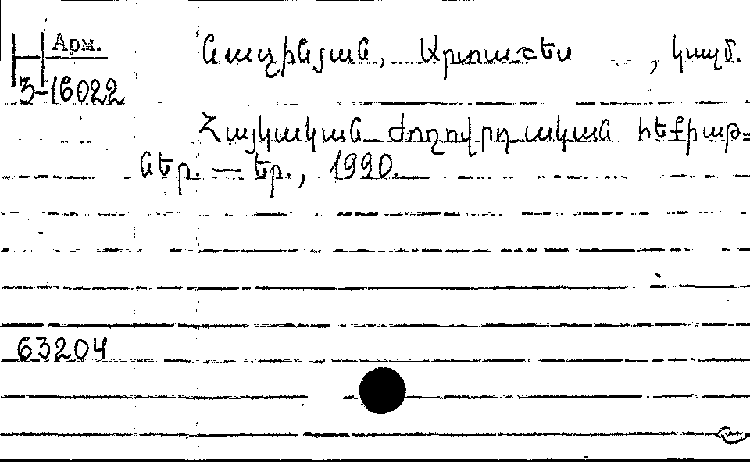 Арм.
3-16022
Նազինյան, Արտաշես , կազմ.
Հայկական ժողովրդական հեքիաթ-
ներ. — Եր., 1990.
63204